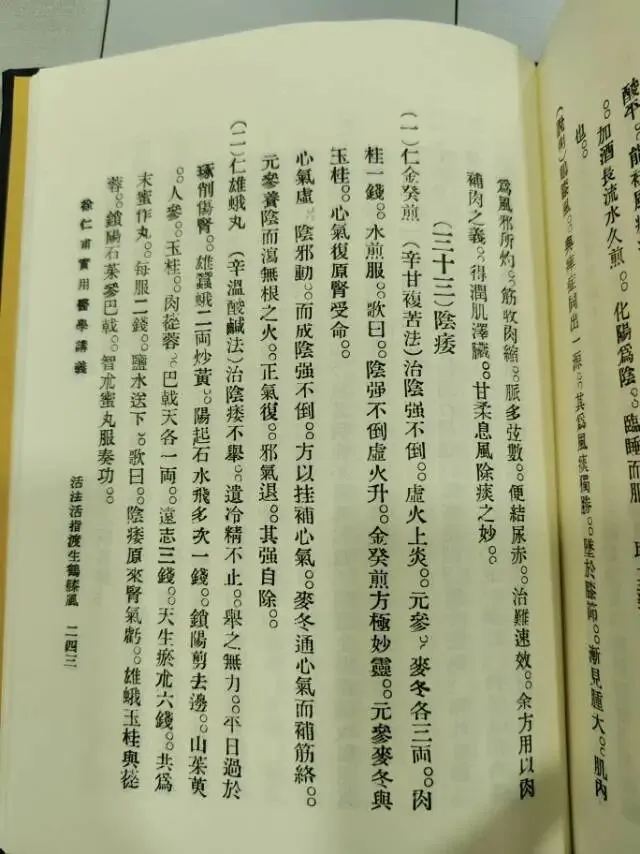 加酒長流水久煎。。化陽爲陰。。臨睡而
也。。
與痺症同出一源。。其爲風痰獨勝。。墜於膝節。。漸見腫大。。肌肉
爲風邪所灼。。筋牧肉縮。。脈多弦數。。便結尿赤。。治難速效。。余方用以肉
補肉之義。。得潤肌澤臟。。甘柔息風除痰之妙。。
(三十三)陰痿
(一)仁金癸煎 (辛甘複苦法)治陰强不倒。。虛火上炎。。元參。。麥冬各三両。。肉
桂一錢。。水煎服。。歌曰。。陰强不倒虛火升。。金癸煎方極妙靈。。元參麥冬與
玉桂。。心氣復原腎受命。。
心氣虛 陰邪動。。而成陰强不倒。。方以挂補心氣。。麥冬通心氣而補筋絡。。
元參養陰而瀉無根之火。。正氣復。。邪氣退。。其强自除。。
(二)仁雄蛾丸 (辛溫酸鹹法)治陰痿不舉。。遺冷精不止。。舉之無力。。平日過於
琢削傷腎。。雄蠶蛾二両炒黃。。陽起石水飛多次一錢。。鎖陽剪去邊。。山茱萸
。。人參。。玉桂。。肉蓯蓉。。巴戟天各一両。。遠志三錢。。天生瘀朮六錢。。共爲
末蜜作丸。。每服二錢。。鹽水送下。。歌曰。。陰痿原來腎氣虧。。雄蛾玉桂與蓯
蓉。。鎖陽石茱參巴戟。。智朮蜜丸服奏功。。
徐仁甫實用醫學講義 活法活指渡生鶴膝風 二四三